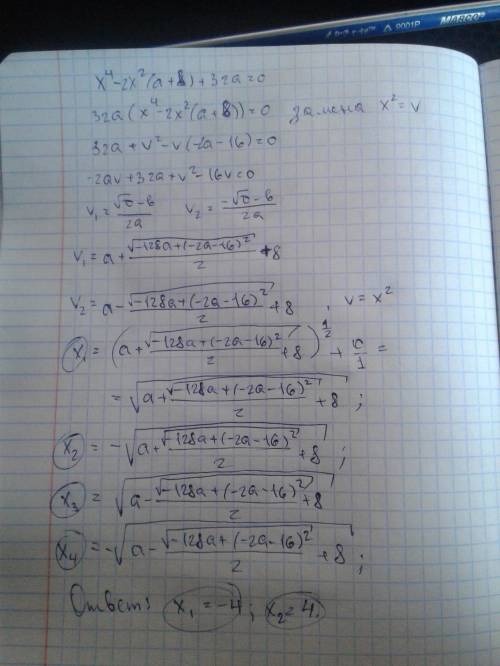 9001P MARCO
x⁴-2x²(a+8)+32a=0
32a(x⁴-2x²(a+8))=0 замена x²=v
32a+v²-v(-2a-16)=0
-2av+32a+v²-16v=0
v₁=(√D-b)/2a v₂=(-√D-b)/2a
v₁=a+√(-128a+(-2a-16)²)/2+8
v₂=a-√(-128a+(-2a-16)²)/2+8, v=x²
x₁=(a+√(-128a+(-2a-16)²)/2+8)^(1/2)+0/1=
=√(a+√(-128a+(-2a-16)²)/2+8);
x₂=-√(a+√(-128a+(-2a-16)²)/2+8);
x₃=√(a-√(-128a+(-2a-16)²)/2+8)
x₄=-√(a-√(-128a+(-2a-16)²)/2+8);
Ответ: x₁=-4; x₂=4.